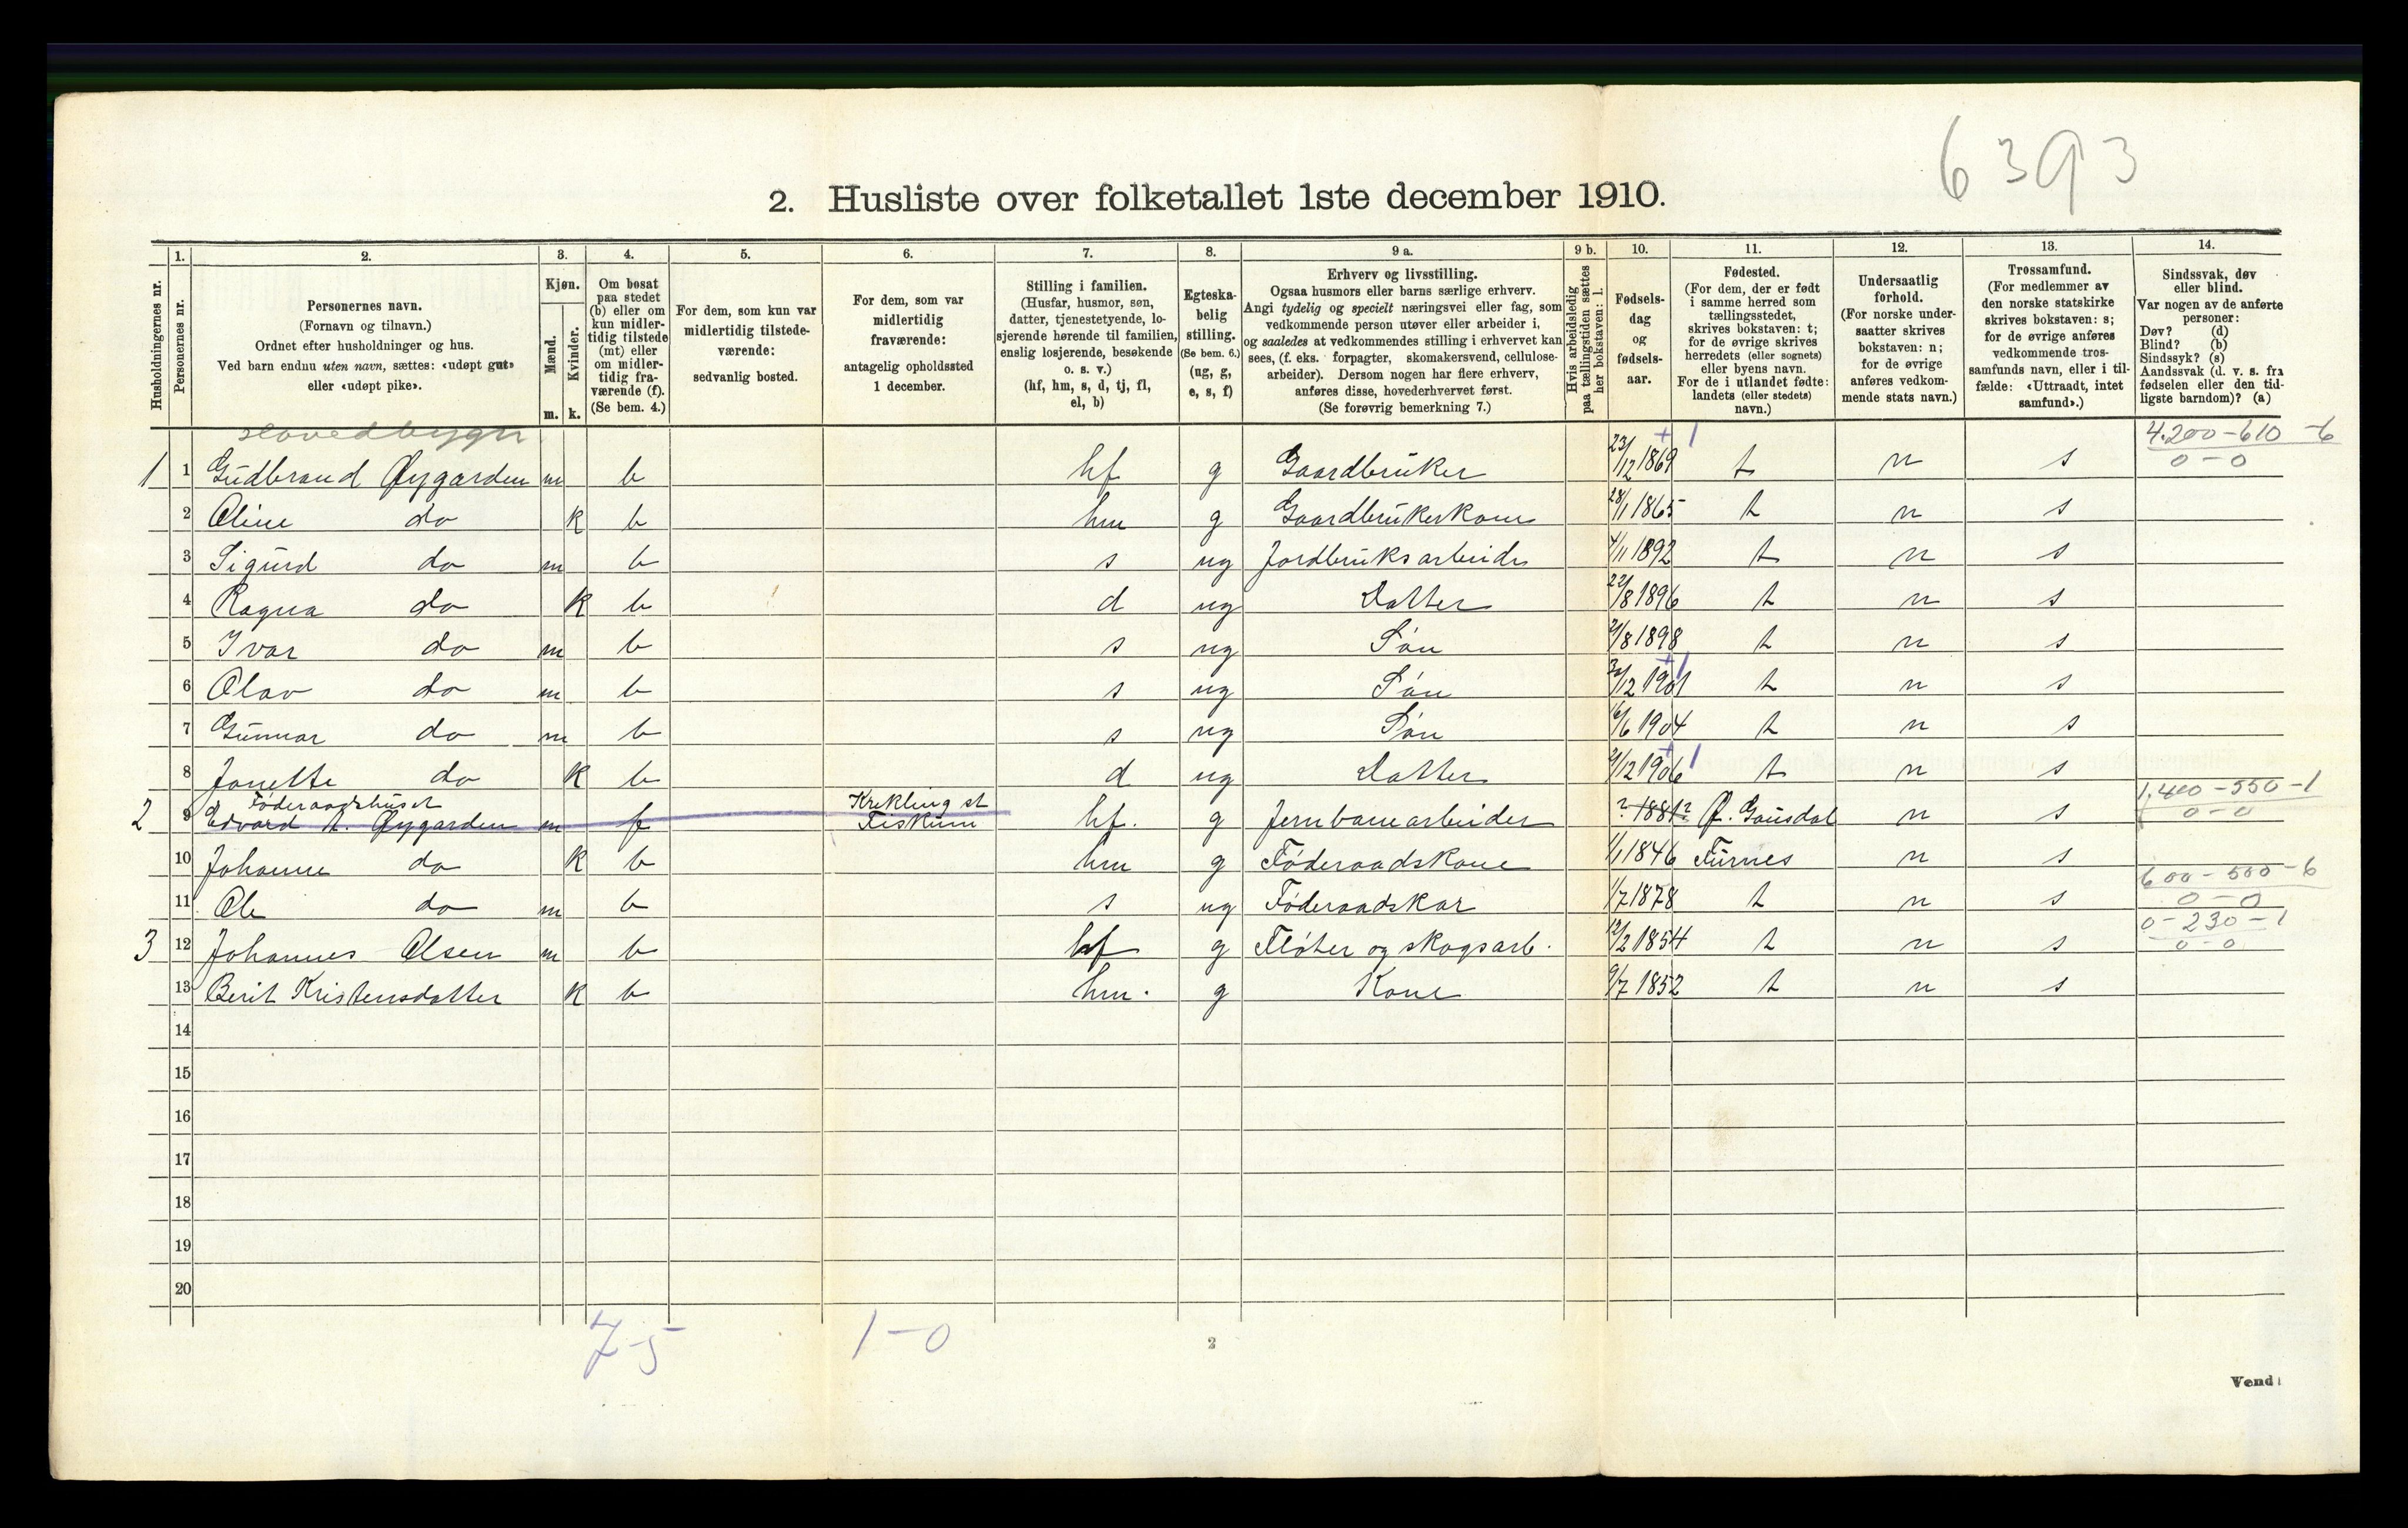 6393
2. Husliste over folketallet 1ste december 1910.
Husholdningernes nr.
1. Personernes nr.
2. Personernes navn. (Fornavn og tilnavn.) Ordnet efter husholdninger og hus. Ved barn endnu uten navn, sættes: «udøpt gut» eller «udøpt pike».
3. Kjøn. Mænd. m. Kvinder. k.
4. Om bosat paa stedet (b) eller om kun midlertidig tilstede (mt) eller om midlertidig fraværende (f). (Se bem. 4.)
5. For dem, som kun var midlertidig tilstedeværende: sedvanlig bosted.
6. For dem, som var midlertidig fraværende: antagelig opholdssted 1 december.
7. Stilling i familien. (Husfar, husmor, søn, datter, tjenestetyende, losjerende hørende til familien, enslig losjerende, besøkende o. s. v.) (hf, hm, s, d, tj, fl, el, b)
8. Egteskabelig stilling. (Se bem. 6.) (ug, g, e, s, f)
9 a. Erhverv og livsstilling. Ogsaa husmors eller barns særlige erhverv. Angi tydelig og specielt næringsvei eller fag, som vedkommende person utøver eller arbeider i, og saaledes at vedkommendes stilling i erhvervet kan sees, (f. eks. forpagter, skomakersvend, cellulosearbeider). Dersom nogen har flere erhverv, anføres disse, hovederhvervet først. (Se forøvrig bemerkning 7.)
9 b. Hvis arbeidsledig paa tællingstiden sættes her bokstaven: l.
10. Fødselsdag og fødselsaar.
11. Fødested. (For dem, der er født i samme herred som tællingsstedet, skrives bokstaven: t; for de øvrige skrives herredets (eller sognets) eller byens navn. For de i utlandet fødte: landets (eller stedets) navn.)
12. Undersaatlig forhold. (For norske undersaatter skrives bokstaven: n; for de øvrige anføres vedkommende stats navn.)
13. Trossamfund. (For medlemmer av den norske statskirke skrives bokstaven: s; for de øvrige anføres vedkommende trossamfunds navn, eller i tilfælde: «Uttraadt, intet samfund».)
14. Sindssvak, døv eller blind. Var nogen av de anførte personer: Døv? (d) Blind? (b) Sindssyk? (s) Aandssvak (d. v. s. fra fødselen eller den tidligste barndom)? (a)
Hovedbygn
4.200-610-6
0-0
1 1 Gudbrand Øygarden m b hf g Gaardbruker 23/12 1869 t n s
2 Oline do k b hm g Gaardbrukerkone 28/1 1865 t n s
3 Sigurd do m b s ug Jordbruksarbeider 4/11 1892 t n s
4 Ragna do k b d ug Datter 22/8 1896 t n s
5 Ivar do m b s ug Søn 21/8 1898 t n s
6 Olav do m b s ug Søn 30/12 1901 t n s
7 Gunnar do m b s ug Søn 16/6 1904 t n s
8 Janette do k b d ug Datter 21/12 1906 t n s
Føderaadshuset Krekling st 1.400-550-1
2 9 Edvard A. Øygarden m f Fiskum hf. g Jernbanearbeider ? 1881? Ø. Gausdal n s 0-0
10 Johanne do k b hm g Føderaadskone 1/1 1846 Furnes n s
600-500-6
11 Ole do m b s ug Føderaadskar 1/7 1878 t n s 0-0
0-230-1
3 12 Johannes Olsen m b hf g Fløter og skogsarb. 12/2 1854 t n s 0-0
13 Berit Kristensdatter k b hm. g Kone 9/7 1852 t n s
14
15
16
17
18
19
20
7-5 1-0
2
Vend!